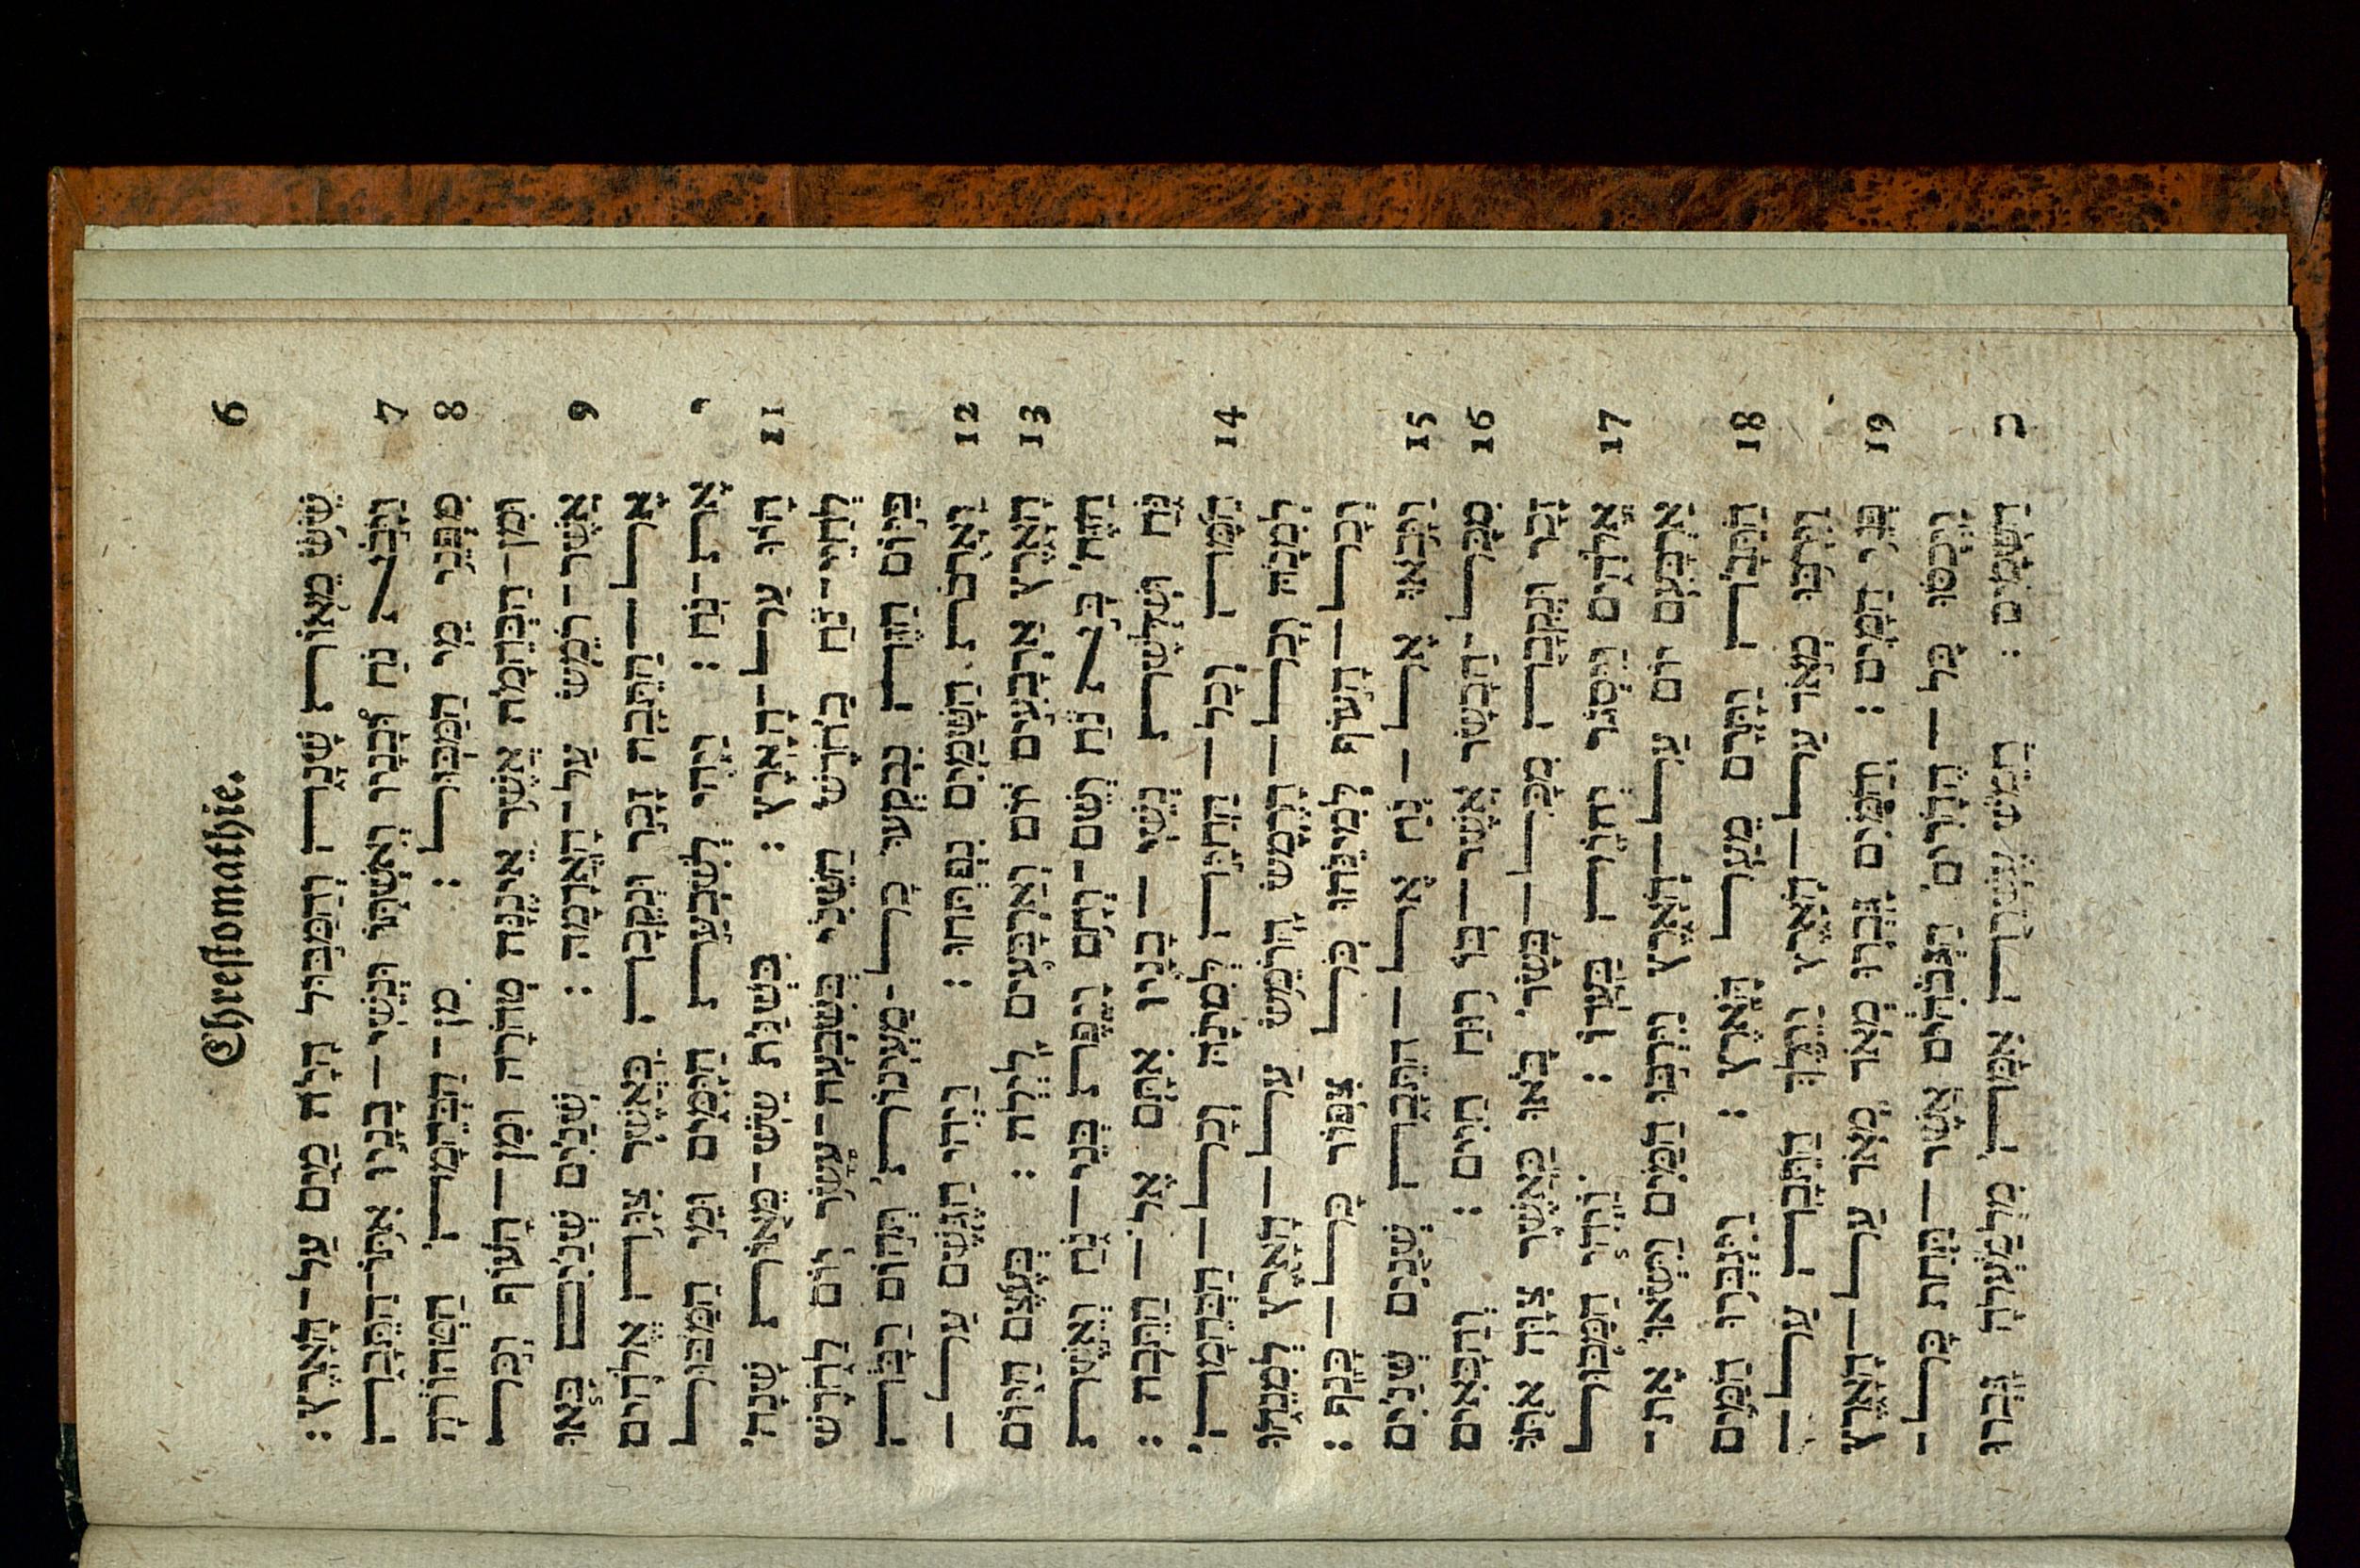 6 Chrestomathie.
שֵׁשׁ מֵאוֹת שָׁנָה וְהַמַּבּוּל הָיָה מַיִם עַל־הָאָרֶץ :
7 וַיָּבֹא נֹחַ וּבָנָיו וְאִשְׁתּוֹ וּנְשֵׁי־בָנָיו אִתּוֹ־הַתֵּבָה
8 מִפְּנֵי מֵי הַמַּבּוּל : מִן־הַבְּהֵמָה הַטְּהוֹרָה
וּמִן־הַבְּהֵמָה אֲשֶׁר אֵינֶנָּה טְהֹרָה וּמִן־הָעוֹף וְכֹל
9 אֲשֶׁר־רֹמֵשׂ עַל־הָאֲדָמָה : שְׁנַיִם שְׁנַיִם בָּאוּ
אֶל־הַתֵּבָה זָכָר וּנְקֵבָה כַּאֲשֶׁר צִוָּה אֱלֹהִים
י אֶת־נֹחַ : וַיְהִי לְשִׁבְעַת הַיָּמִים וּמֵי הַמַּבּוּל
11 הָיוּ עַל־הָאָרֶץ : בִּשְׁנַת שֵׁשׁ־מֵאוֹת שָׁנָה
לְחַיֵּי־נֹחַ בַּחֹדֶשׁ הַשֵּׁנִי בְּשִׁבְעָה־עָשָׂר יוֹם לַחֹדֶשׁ
בַּיּוֹם הַזֶּה נִבְקְעוּ כָּל־מַעְיְנוֹת תְּהוֹם רַבָּה
12 וַאֲרֻבֹּת הַשָּׁמַיִם נִפְתָּחוּ : וַיְהִי הַגֶּשֶׁם עַל־
13 הָאָרֶץ אַרְבָּעִים יוֹם וְאַרְבָּעִים לָיְלָה : בְּעֶצֶם הַיּוֹם
הַזֶּה בָּא נֹחַ וְשֵׁם־וְחָם וָיֶפֶת בְּנֵי־נֹחַ וְאֵשֶׁת
נֹחַ וּשְׁלֹשֶׁת נְשֵׁי־בָנָיו אִתָּם אֶל־הַתֵּבָה :
14 הֵמָּה וְכָל־הַחַיָּה לְמִינָהּ וְכָל־הַבְּהֵמָה
לְמִינָהּ וְכָל־הָרֶמֶשׂ הָרֹמֵשׂ עַל־הָאָרֶץ לְמִינֵהוּ
וְכָל־הָעוֹף לְמִינֵהוּ כֹּל צִפּוֹר כָּל־כָּנָף :
15 וַיָּבֹאוּ אֶל־נֹחַ אֶל־הַתֵּבָה שְׁנַיִם שְׁנַיִם
16 מִכָּל־הַבָּשָׂר אֲשֶׁר־בּוֹ רוּחַ חַיִּים : וְהַבָּאִים
זָכָר וּנְקֵבָה מִכָּל־בָּשָׂר בָּאוּ כַּאֲשֶׁר צִוָּה אֹתוֹ
17 אֱלֹהִים וַיִּסְגֹּר יְהוָה בַּעֲדוֹ : וַיְהִי הַמַּבּוּל
אַרְבָּעִים יוֹם עַל־הָאָרֶץ וַיִּרְבּוּ הַמַּיִם וַיִּשְׂאוּ אֶת־
18 הַתֵּבָה וַתָּרָם מֵעַל הָאָרֶץ : וַיִּגְבְּרוּ הַמַּיִם
וַיִּרְבּוּ מְאֹד עַל־הָאָרֶץ וַתֵּלֶךְ הַתֵּבָה עַל־
19 פְּנֵי הַמָּיִם : וְהַמַּיִם גָּבְרוּ מְאֹד מְאֹד עַל־הָאָרֶץ
וַיְכֻסּוּ כָּל־הֶהָרִים הַגְּבֹהִים אֲשֶׁר־תַּחַת כָּל־
כ הַשָּׁמָיִם : חֲמֵשׁ עֶשְׂרֵה אַמָּה מִלְמַעְלָה גָּבְרוּ